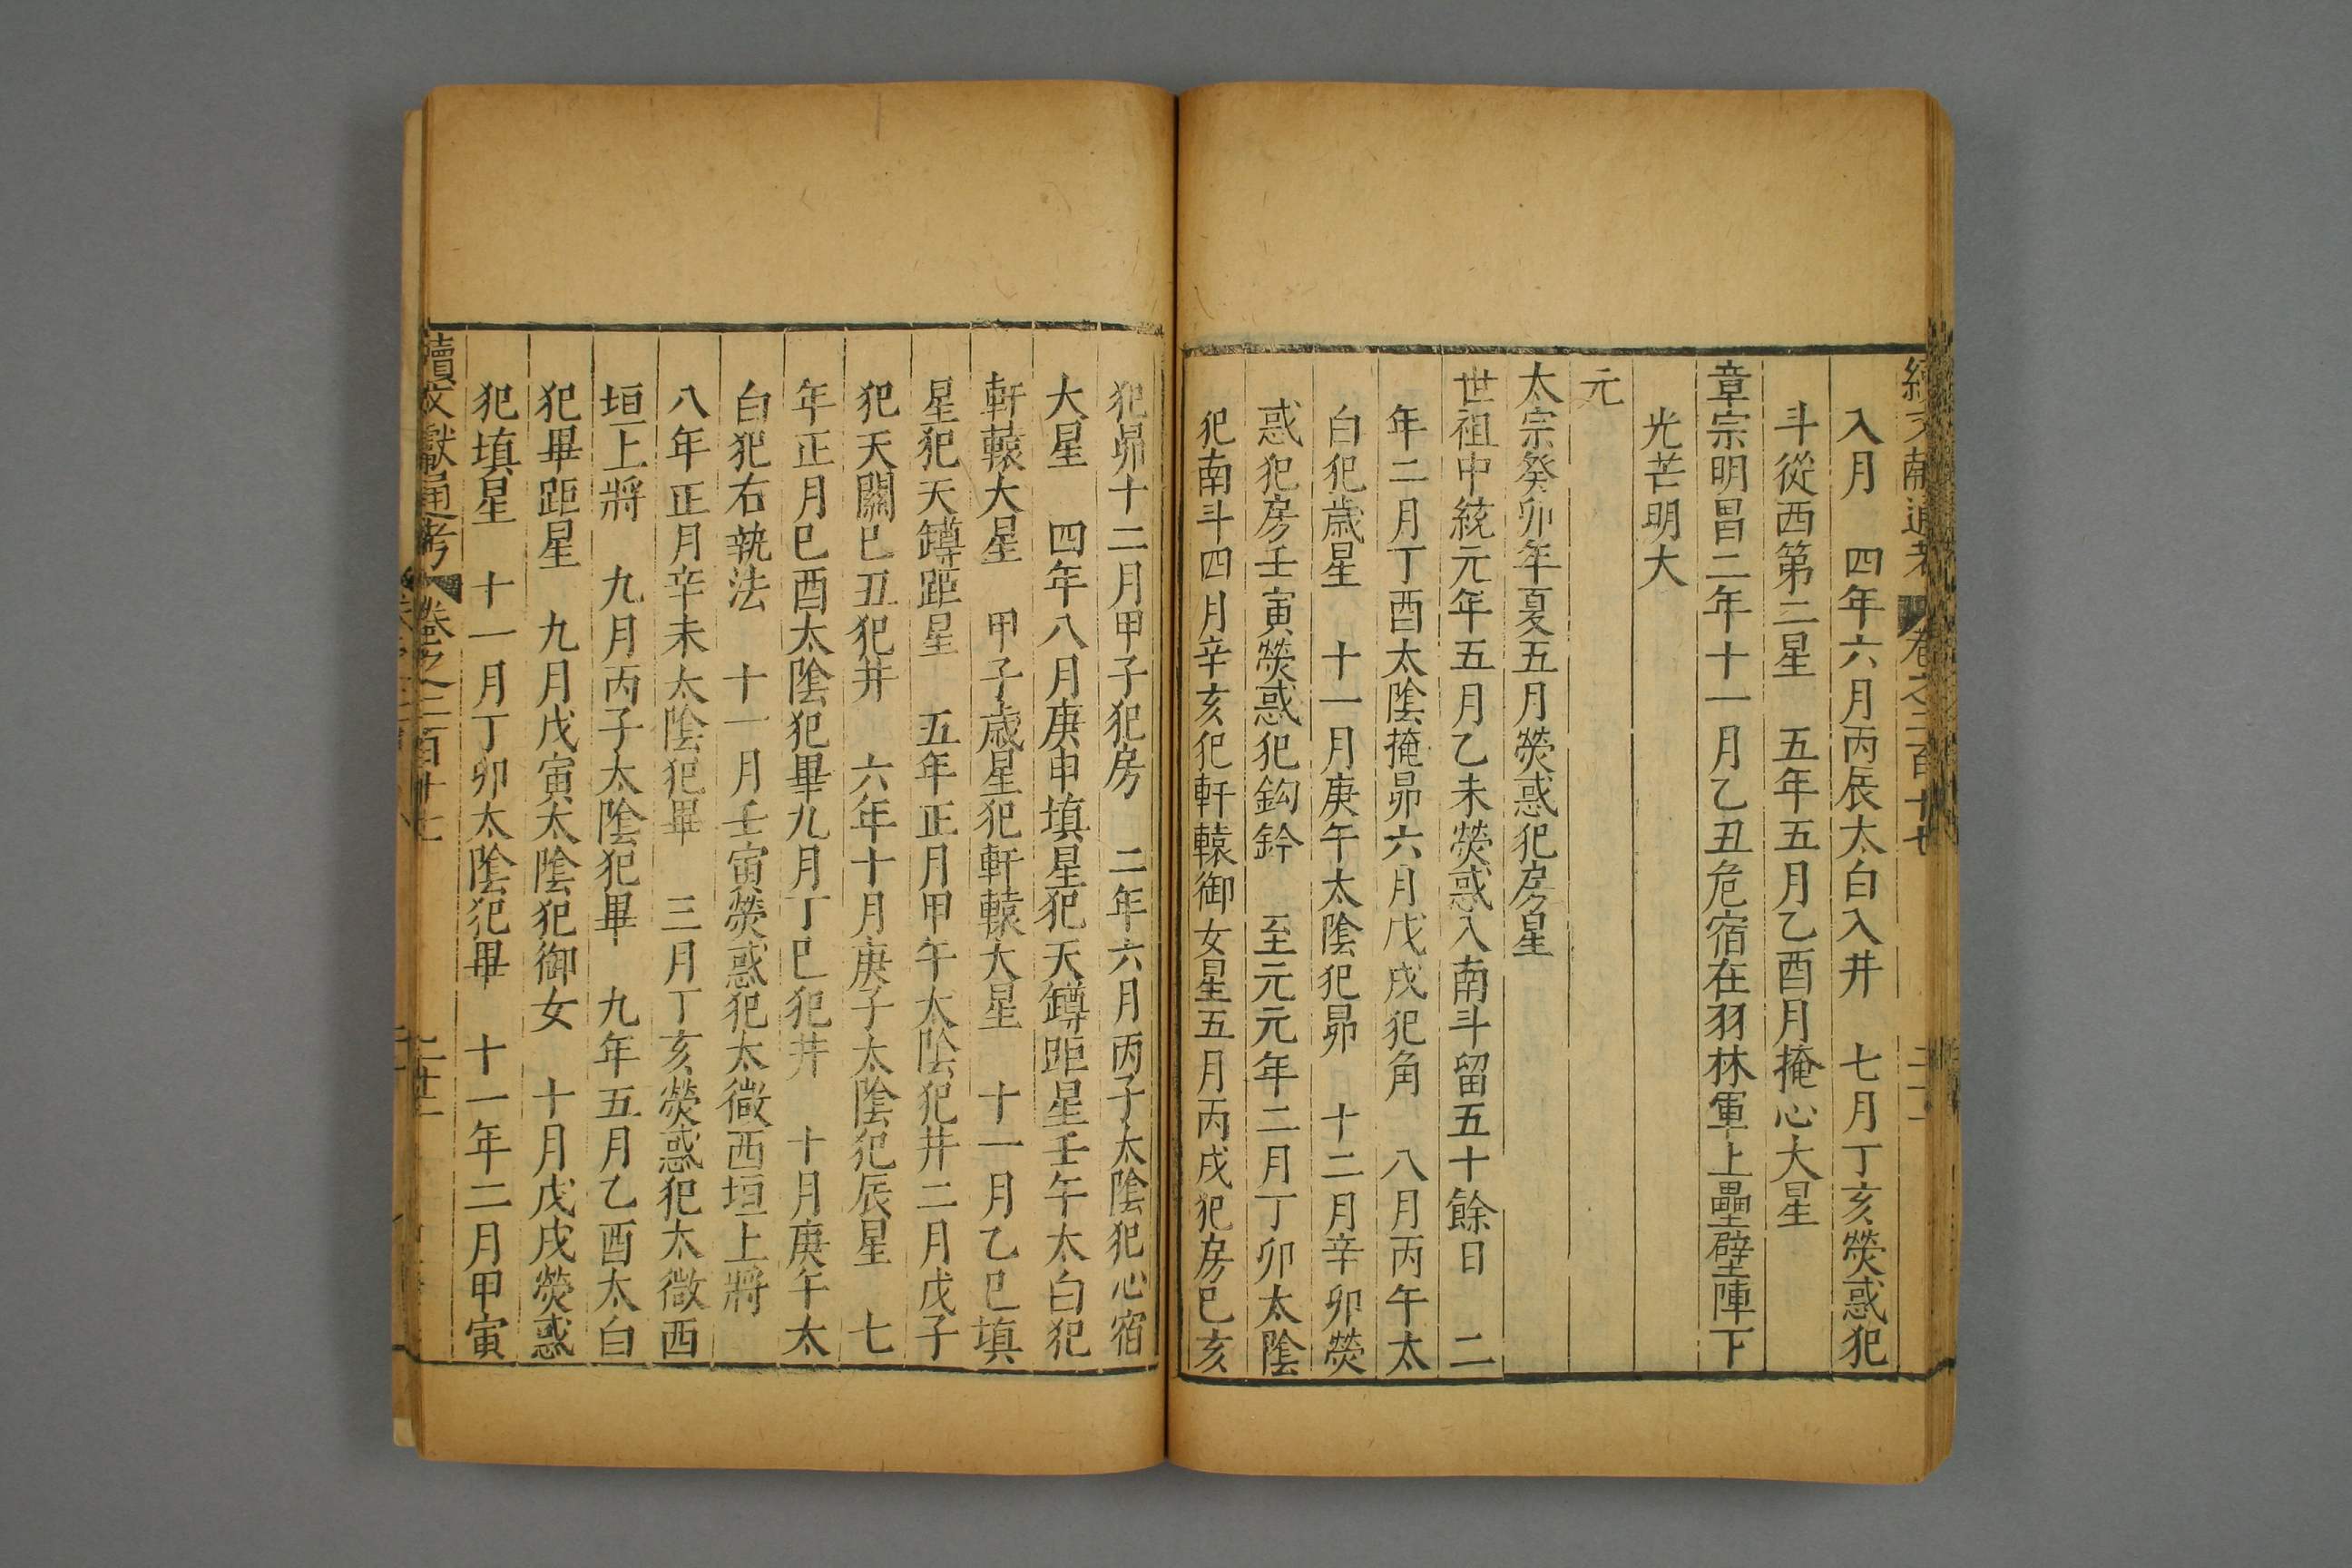 續文獻通考 卷之二百十七
入月 四年六月丙辰太白入井 七月丁亥熒惑犯
斗從西第二星 五年五月乙酉月掩心大星
章宗明昌二年十一月乙丑危宿在羽林軍上壘壁陣下
光芒明大
元
太宗癸卯年夏五月熒惑犯房星
世祖中統元年五月乙未熒惑入南斗留五十餘日 二
年二月丁酉太陰掩昴六月戊戌犯角 八月丙午太
白犯歲星 十一月庚午太陰犯昴 十二月辛卯熒
惑犯房壬寅熒惑犯鈎鈐 至元元年二月丁卯太陰
犯南斗四月辛亥犯軒轅御女星五月丙戌犯房巳亥
犯昴十二月甲子犯房 二年六月丙子太陰犯心宿
大星 四年八月庚申填星犯天罇距星壬午太白犯
軒轅大星 甲子歲星犯軒轅大星 十一月乙巳填
星犯天罇距星 五年正月甲午太陰犯井二月戊子
犯天關巳丑犯井 六年十月庚子太陰犯辰星 七
年正月巳酉太陰犯畢九月丁巳犯井 十月庚午太
白犯右執法 十一月壬寅熒惑犯太微西垣上將
八年正月辛未太陰犯畢 三月丁亥熒惑犯太微西
垣上將 九月丙子太陰犯畢 九年五月乙酉太白
犯畢距星 九月戊寅太陰犯御女 十月戊戌熒惑
犯填星 十一月丁卯太陰犯畢 十一年二月甲寅
續文獻通考 卷之二百十七